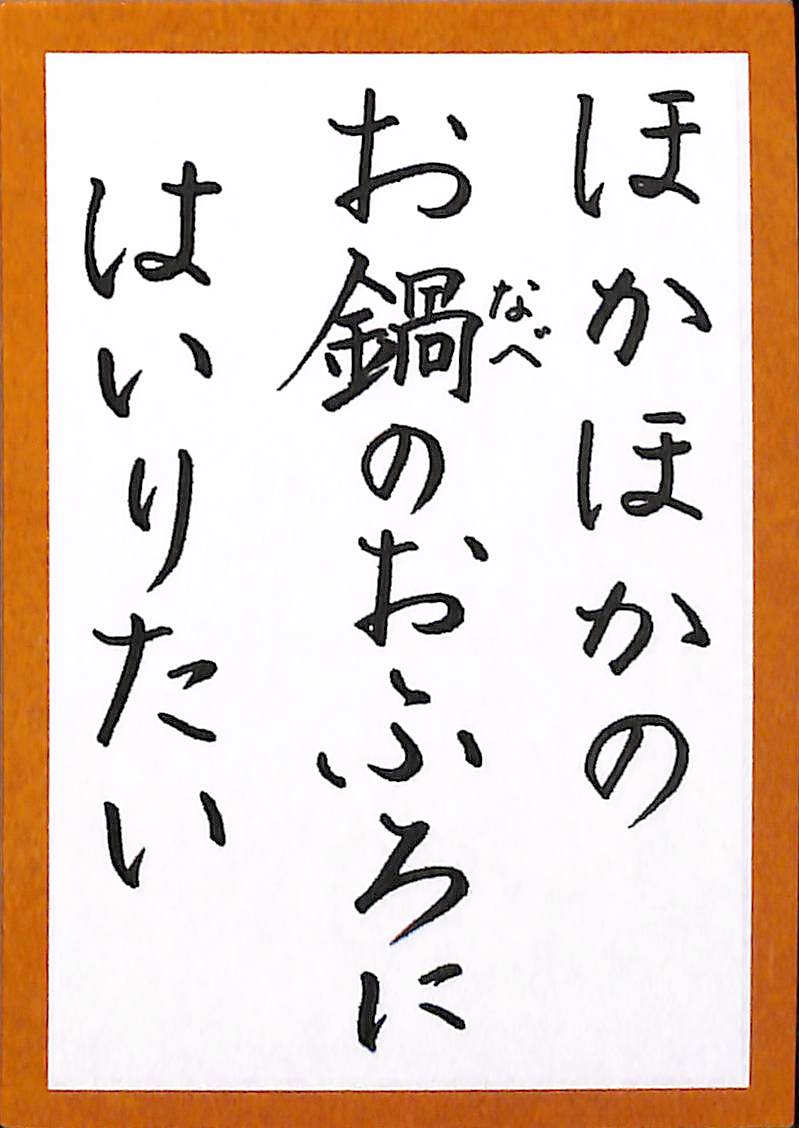 ほかほかの
お鍋のおふろに
なべ
はいりたい